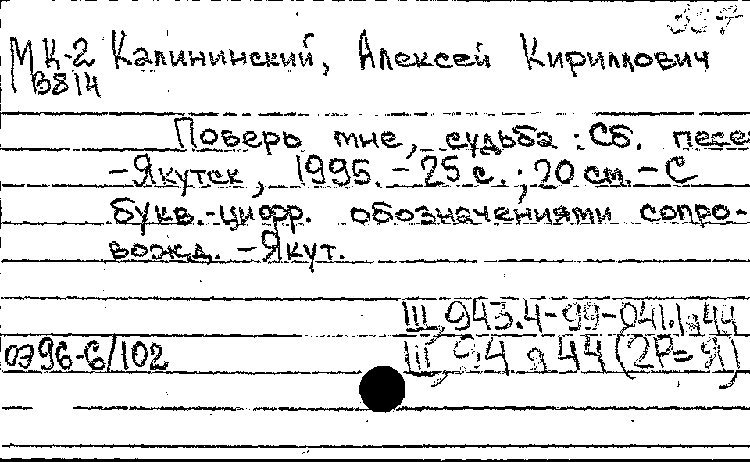 337
МК-2 Калининский, Алексей Кириллович
В814
Поверь мне, судьба : Сб. песе
-Якутск, 1995. - 25 с. ; 20 см. - С
букв.-цифр. обозначениями сопро-
вожд. - Якут.
III, 943.4-99-041.1я44
ОЭ96-6/102
III, 94 я 44 (2Р=Я)